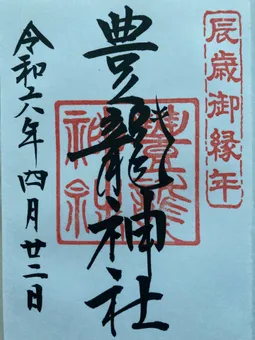 辰歳御縁年
豊久龍神社
令和六年四月廿二日